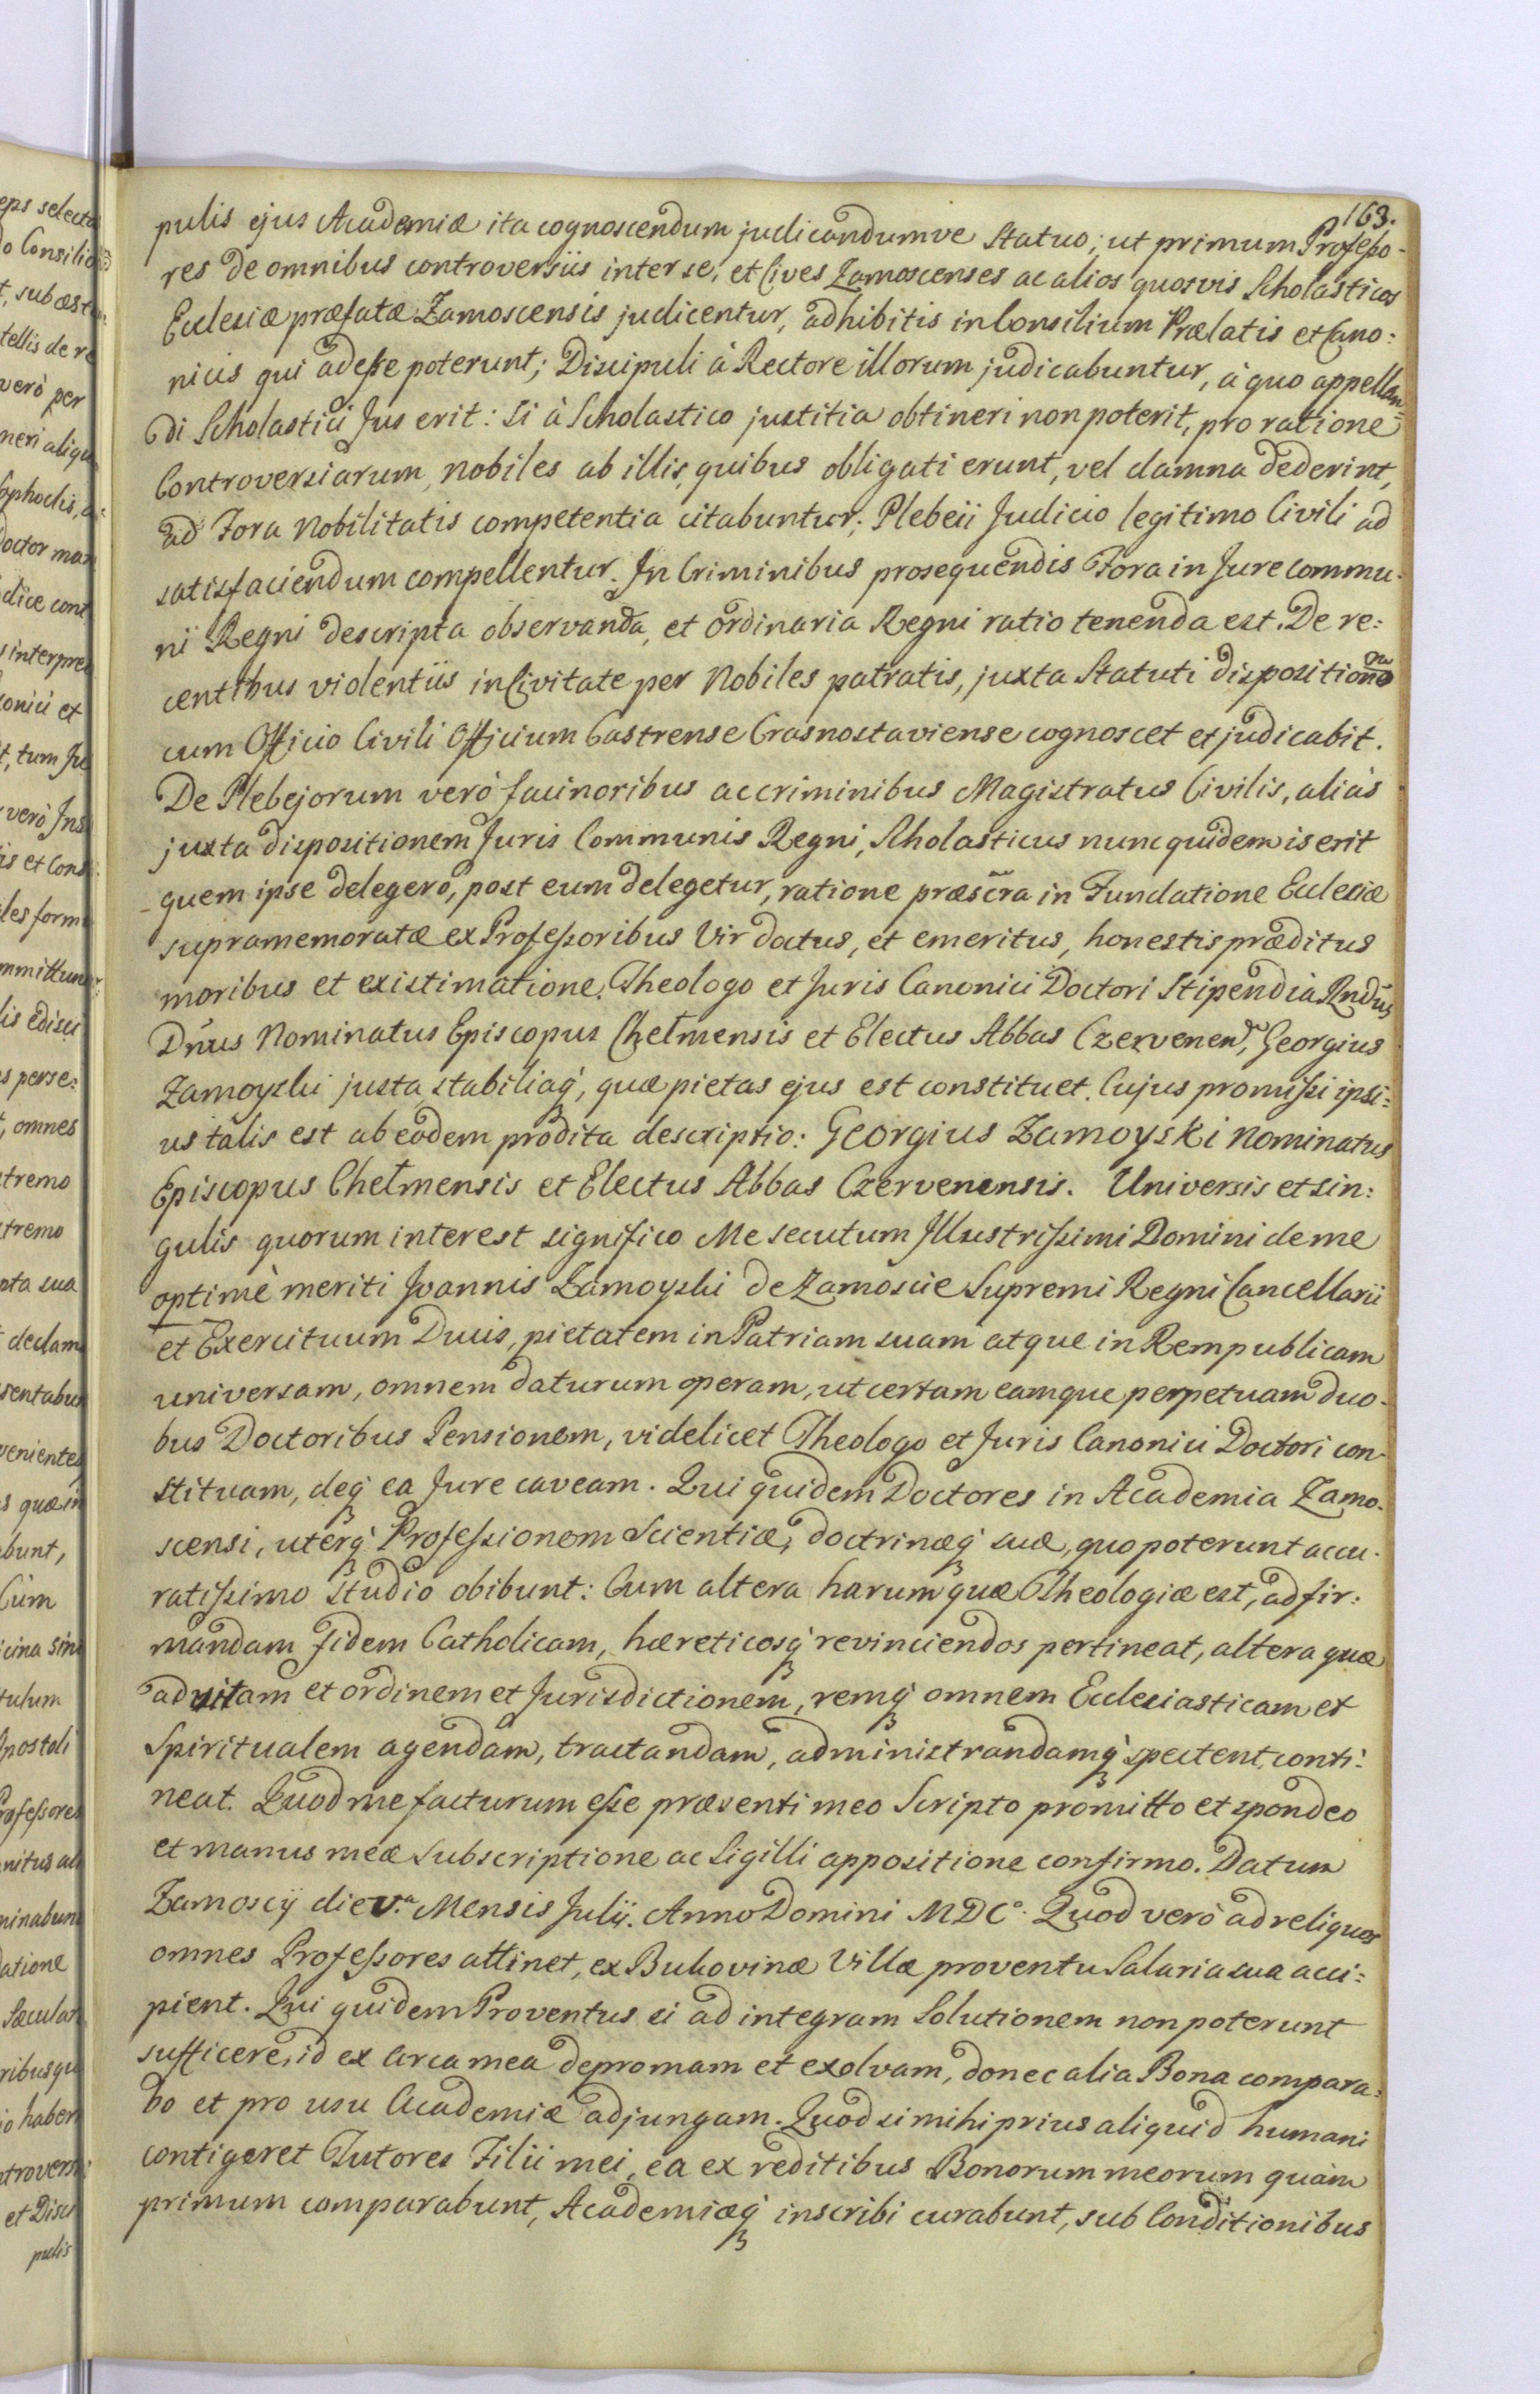 163.
pulis ejus Academiæ ita cognoscendum judicandumve statuo; ut primum Professo-
res de omnibus controversiis inter se, et Cives Zamoscenses ac alios quosvis Scholasticos
Ecclesiæ præfatæ Zamoscensis judicentur, adhibitis in Consilium Prælatis et Cano:
nicis qui adesse poterunt; Discipuli à Rectore illorum judicabuntur, à quo appellan=
di Scholastici Jus erit: si à Scholastico justitia obtineri non poterit, pro ratione
Controversiarum, nobiles ab illis, quibus obligati erunt, vel damna dederint,
ad Fora Nobilitatis competentia citabuntur; Plebeii Judicio legitimo Civili ad
satisfaciendum compellentur. In Criminibus prosequendis Fora in Jure commu-
ni Regni descripta observanda, et ordinaria Regni ratio tenenda est. De re:
centibus violentiis in Civitate per Nobiles patratis, juxta Statuti dispositione
cum Officio Civili Officium Castrense Crasnostaviense cognoscet et judicabit.
De Plebejorum verò facinoribus ac criminibus Magistratus Civilis, aliàs
juxta dispositionem Juris Communis Regni, Scholasticus nunc quidem is erit
quem ipse delegero, post eum delegetur, ratione præscrã in Fundatione Ecclesiæ
supramemoratæ ex Professoribus Vir doctus, et emeritus, honestis præditus
moribus et existimatione. Theologo et Juris Canonici Doctori Stipendia Rndūs
Dnūs Nominatus Episcopus Chełmensis et Electus Abbas Czervenen, Georgius
Zamoyski justa stabiliaq, quæ pietas ejus est constituet. Cujus promissi ipsi:
us talis est ab eodem prodita descriptio: Georgius Zamoyski Nominatus
Episcopus Chełmensis et Electus Abbas Czervenensis. Universis et sin:
gulis quorum interest significo Me secutum Illustrissimi Domini de me
optimè meriti Joannis Zamoyski de Zamoscie Supremi Regni Cancellarii
et Exercituum Ducis, pietatem in Patriam suam atque in Rempublicam
universam, omnem daturum operam, ut certam eamque perpetuam duo-
bus Doctoribus Pensionem, videlicet Theologo et Juris Canonici Doctori con-
stituam, deq ea Jure caveam. Qui quidem Doctores in Academia Zamo-
scensi, uterq Professionem Scientiæ, doctrinæq suæ, quo poterunt accu-
ratissimo studio obibunt: Cum altera harum quæ Theologiæ est, ad fir:
mandam Fidem Catholicam, hæreticosq revinciendos pertineat, altera quæ
ad vitam et ordinem et Jurisdictionem, remq omnem Ecclesiasticam et
Spiritualem agendam, tractandam, administrandamq spectent, conti:
neat. Quod me facturum esse præsenti meo Scripto promitto et spondeo
et manus meæ Subscriptione ac Sigilli appositione confirmo. Datum
Zamoscij die V.ª Mensis Julij. Anno Domini MDCº. Quod verò ad reliquos
omnes Professores attinet, ex Bukovinæ Villæ proventu Salaria sua acci=
pient. Qui quidem Proventus si ad integram Solutionem non poterunt
sufficere, id ex Arca mea depromam et exolvam, donec alia Bona compara:
bo et pro usu Academiæ adjungam. Quod si mihi prius aliquid humani
contigeret Tutores Filii mei, ea ex reditibus Bonorum meorum quàm
primum comparabunt, Academiæq inscribi curabunt, sub Conditionibus